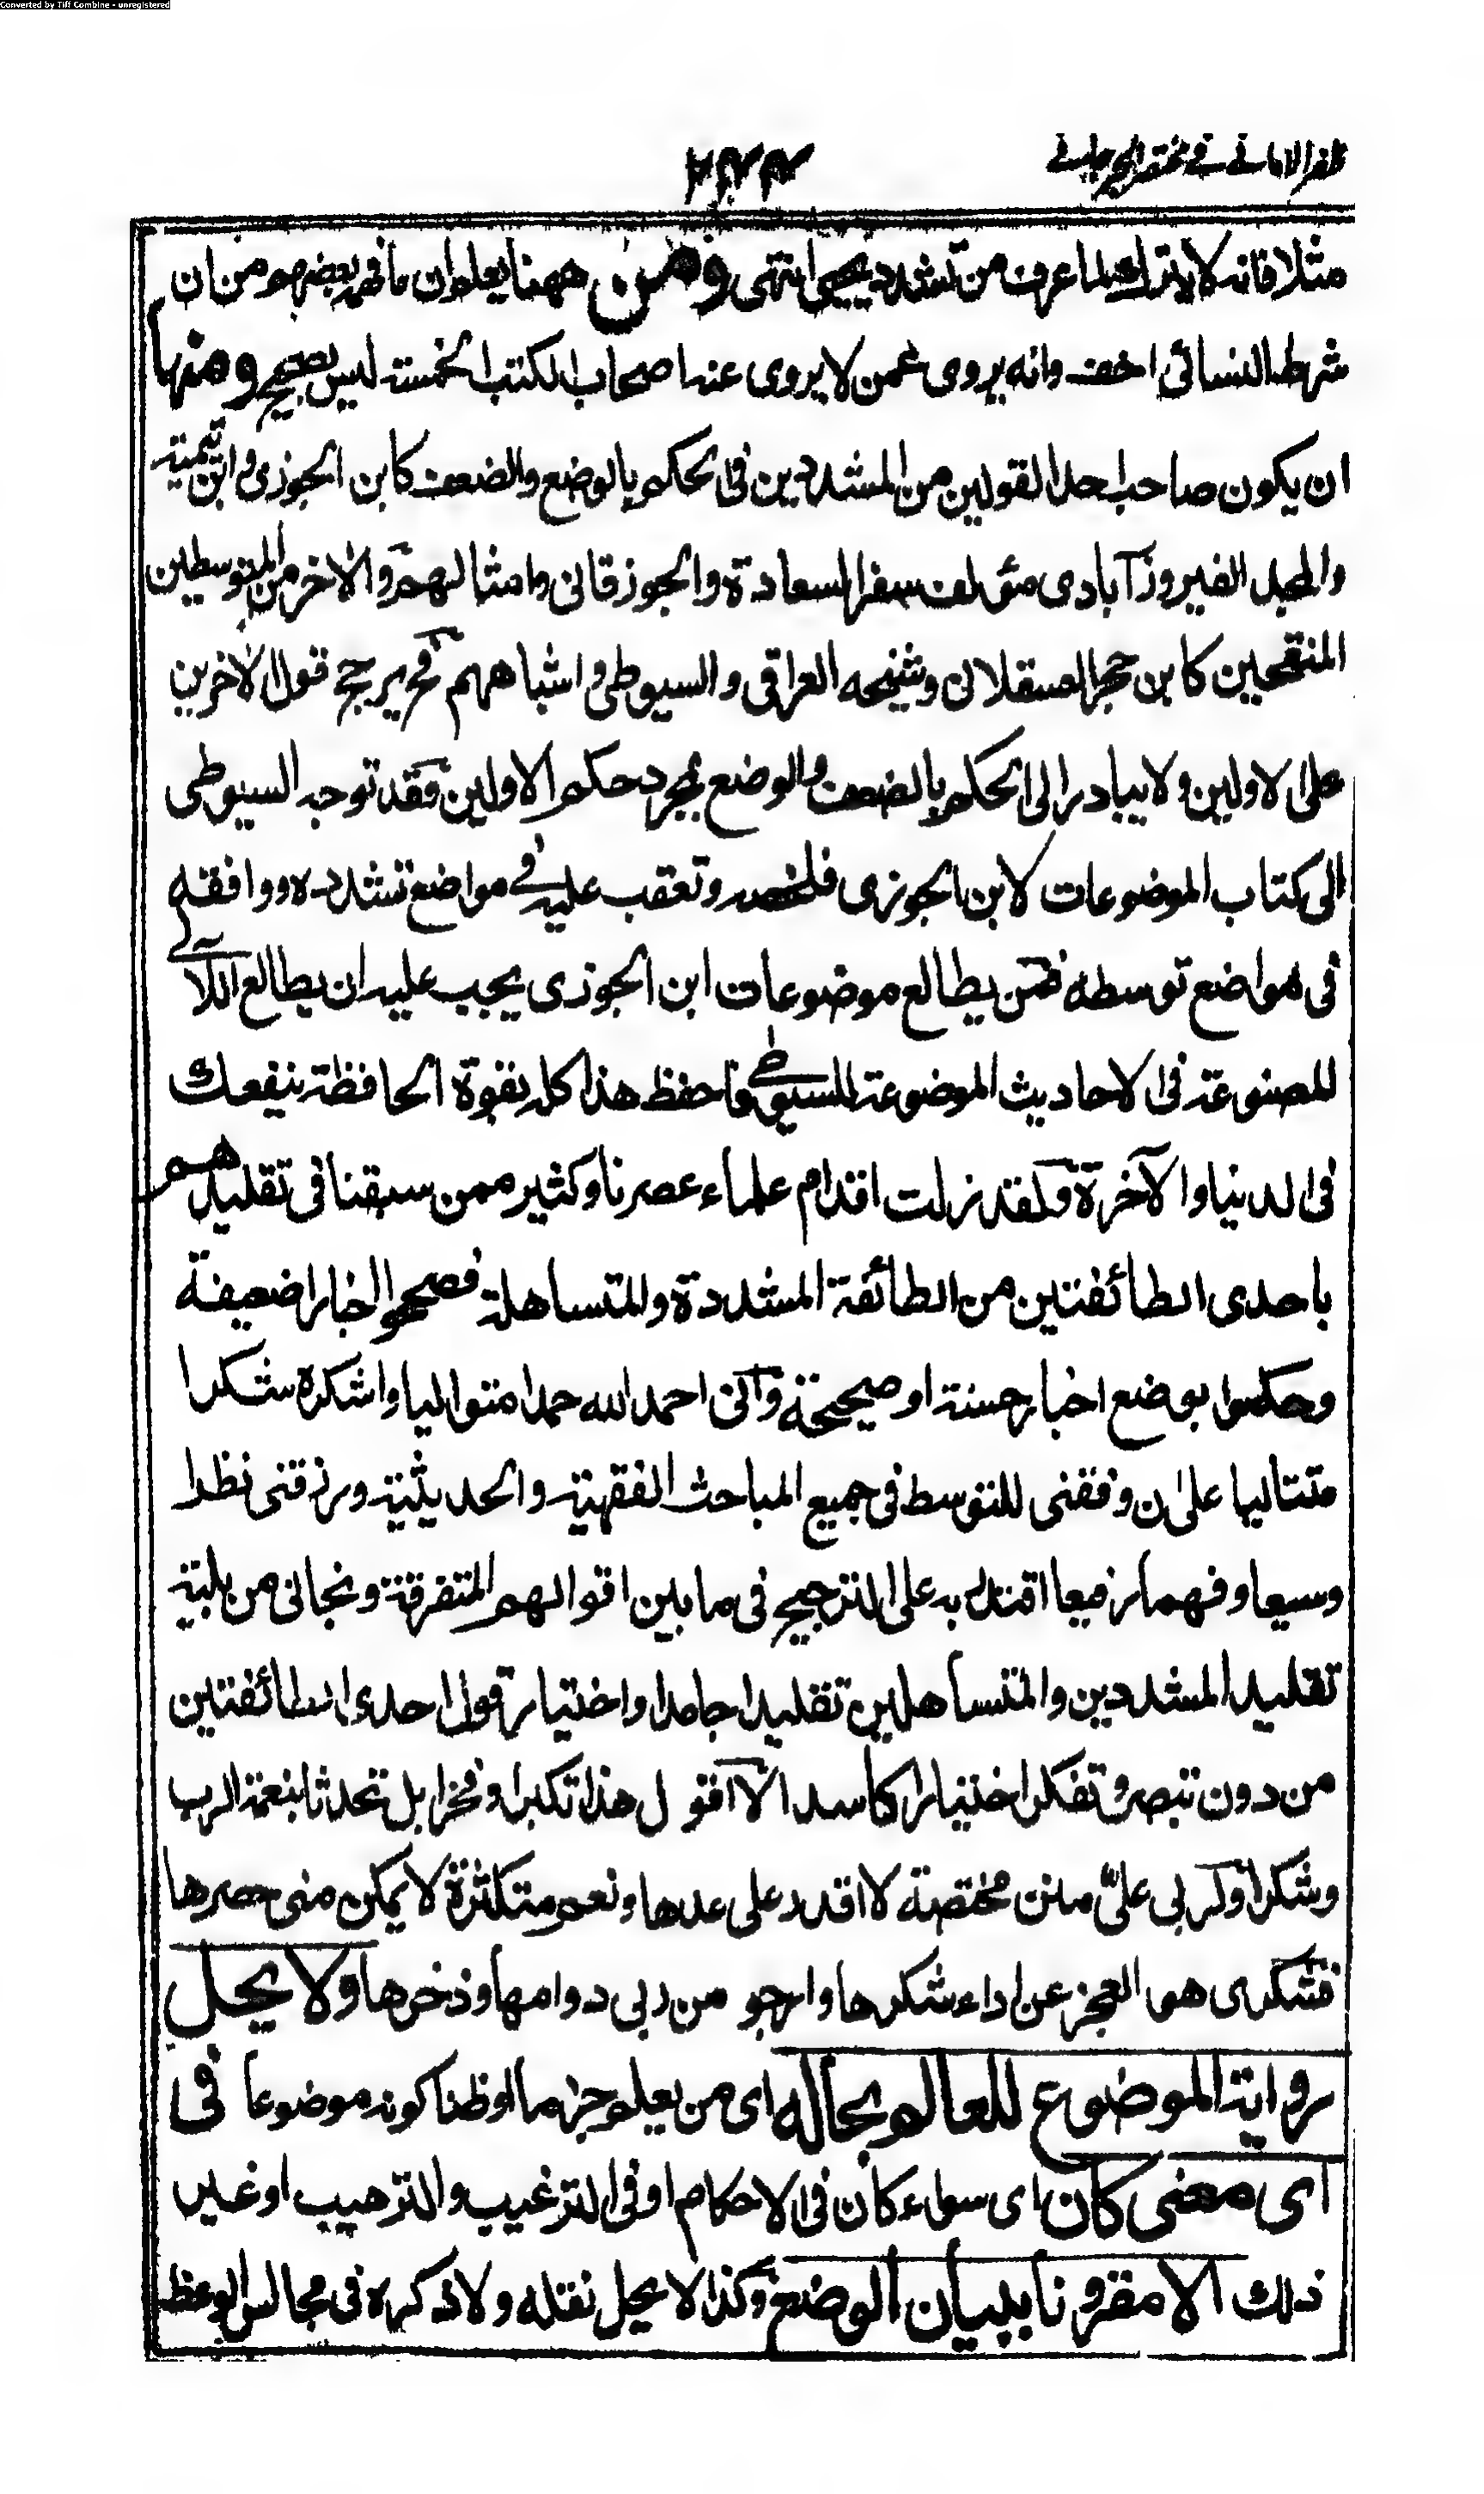 Converted by Tiff Combine - unregistered
ظفر الامانی فی مختصر الجرجانی
مثلا فانه لا یترك لما عرف من تشدد یحیی انتهی ومن ههنا یعلم ان ما فهمه بعضهم من ان
شرط النسائی اخف وانه یروی عمن لا یروی عنه اصحاب الکتب الخمسة لیس بصحیح ومنها
ان یکون صاحب احد القولین من المشددین فی الحکم بالوضع والضعف کابن الجوزی وابن تیمیة
والمجد الفیروزآبادی مؤلف سفر السعادة والجوزقانی وامثالهم والاخر من المتوسطین
المنقحین کابن حجر العسقلانی وشیخه العراقی والسیوطی واشباههم فح یرجح قول الآخرین
علی الاولین ولا یبادر الی الحکم بالضعف والوضع بمجرد حکم الاولین فقد توجه السیوطی
الی کتاب الموضوعات لابن الجوزی فلخصه وتعقب علیه فی مواضع تشدده ووافقه
فی مواضع توسطه فمن یطالع موضوعات ابن الجوزی یجب علیه ان یطالع اللآلی
المصنوعة فی الاحادیث الموضوعة للسیوطی فاحفظ هذا کله بقوة الحافظة ینفعك
فی الدنیا والآخرة فلقد زلت اقدام علماء عصرنا وکثیر ممن سبقنا فی تقلیدهم
باحدی الطائفتین من الطائفة المشددة والمتساهلة فصححوا اخبارا ضعیفة
وحکموا بوضع اخبار حسنة او صحیحة وانی احمد الله حمدا متوالیا واشکره شکرا
متتالیا علی ان وفقنی للتوسط فی جمیع المباحث الفقهیة والحدیثیة ورزقنی نظرا
وسیعا وفهما رفیعا اقتدر به علی الترجیح فی ما بین اقوالهم المتفرقة ونجانی من بلیة
تقلید المشددین والمتساهلین تقلیدا جامدا واختیار قول احدی الطائفتین
من دون تبصر وتفکر اختیارا کاسدا لا اقول هذا تکبرا وفخرا بل تحدثا بنعمة الرب
وشکرا وکم لربی علیّ منن مختصة لا اقدر علی عدها ونعم متکثرة لا یمکن منی حصرها
فشکری هو العجز عن اداء شکرها وارجو من ربی دوامها وذخرها ولا یحل
روایة الموضوع للعالم بحاله ای من یعلم جزما او ظنا کونه موضوعا فی
ای معنی کان ای سواء کان فی الاحکام او فی الترغیب والترهیب او غیر
ذلك الا مقرونا ببیان الوضع وکذا لا یحل نقله ولا ذکره فی مجالس الوعظ